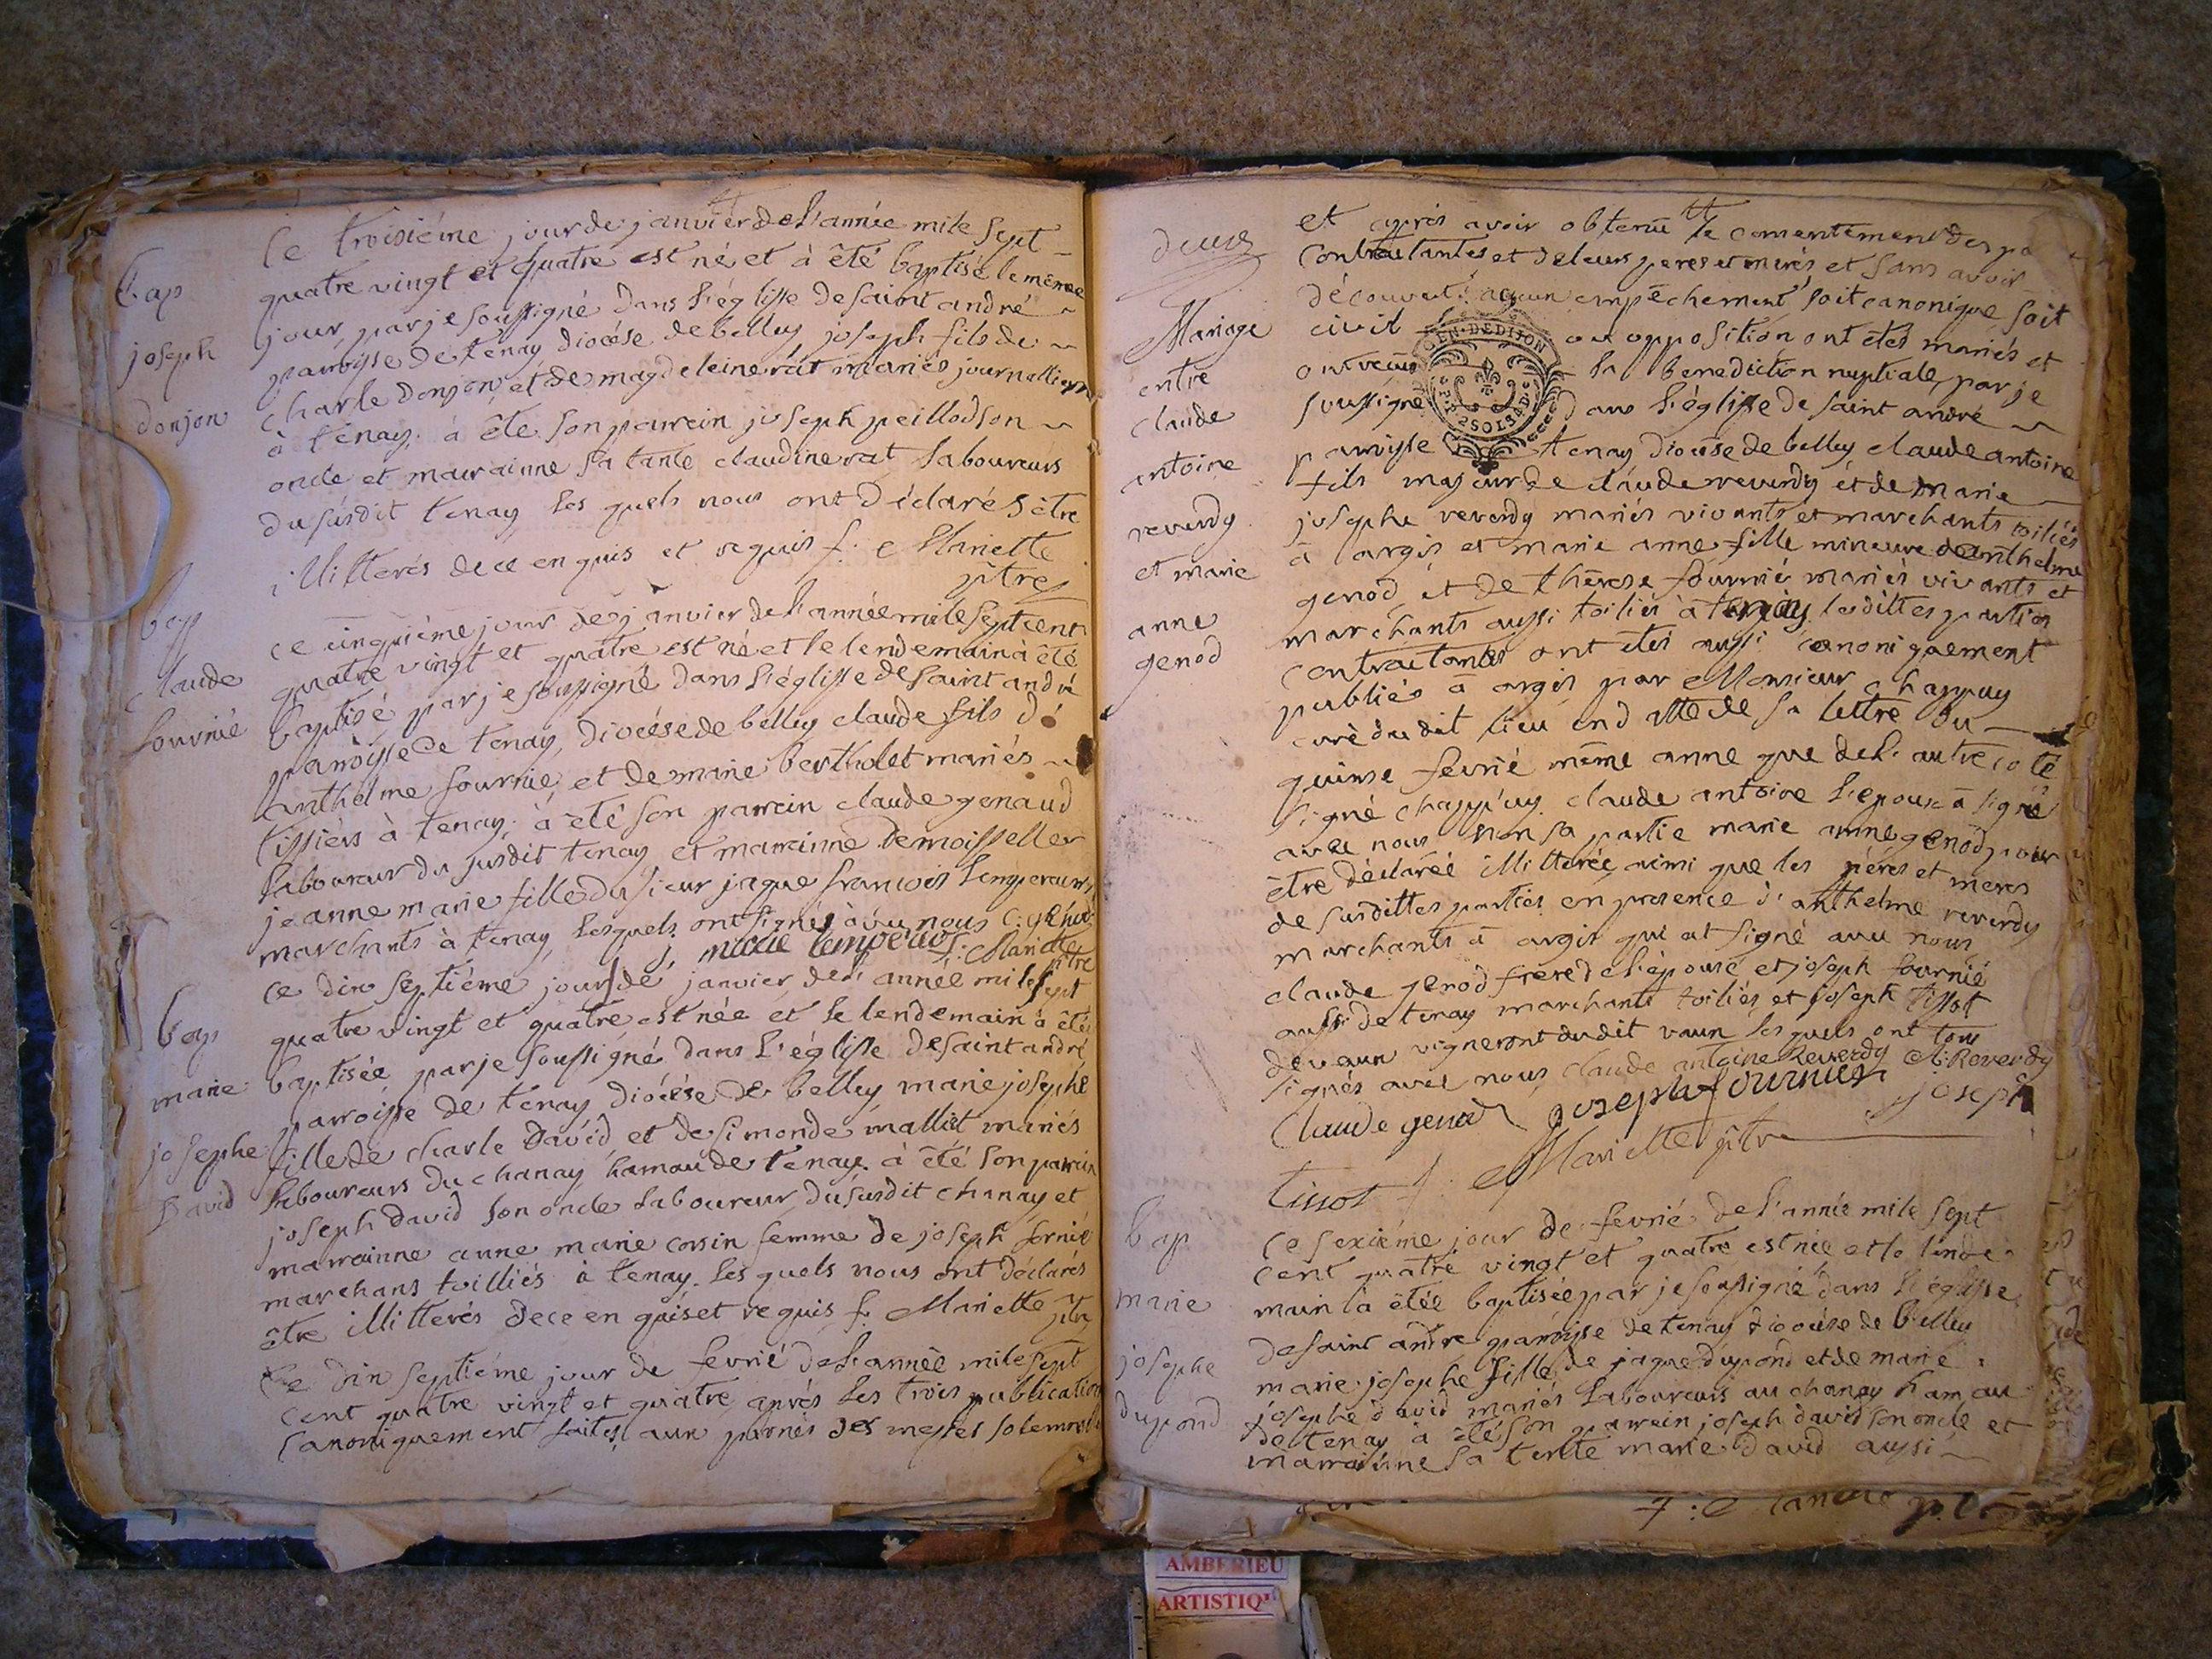 ce troisiéme jour de janvier de l'année mile sept
quatre vingt et quatre est né et à été baptisé le même
jour, par je soussigné dans l'églisse de saint andré
parroisse de tenay diocése de belley joseph fils de
charle donjon et de magdeleine rat mariés journalliers
à tenay. à été son parrein joseph peillodson
oncle et marrainne sa tante claudine rat laboureurs
du susdit tenay les quels nous ont déclaré s être
illitterés de ce enquis et requis f: Mariette
ptre
bap
joseph
donjon
ce cinquiéme jour de janvier de l'année mile sept cent
quatre vingt et quatre est né et le lendemain à été
baptisé par je soussigné dans l'églisse de saint andré
parroisse de tenay, diocése de belley claude fils d'
anthelme fournié et de marie bertholet mariés
tissiérs à tenay; à été son parrein claude genaud
laboureur du susdit tenay et marrainne demoisselle
jeanne marie fille du sieur jaque francois l'empereur,
marchants à tenay, lesquels ont signés avec nous C: genod
j, marie lempereur f: Mariette
ptre
bap
claude
fournié
ce dix septiéme jour de janvier de l'année mile sept
quatre vingt et quatre est née et le lendemain à été
baptisée par je soussigné dans l'églisse de saint andré
parroisse de tenay diocése de belley marie josephe
fille de charle david et de simonde malliet mariés
laboureurs du chanay hamau de tenay. à été son parrain
joseph david son oncle laboureur du susdit chanay et
marrainne anne marie corsin femme de joseph fornié
marchans toilliés à tenay. les quels nous ont déclarés
être illitterés de ce enquis et requis f: Mariette ptre
bap
marie
josephe
david
ce dix septiéme jour de fevrié de l'année mile sept
cent quatre vingt et quatre, aprés les trois publication
canoniquement faites, aux prônes des messes solemnelle
deux
et aprés avoir obtenu le consentement des pa
contractantes et de leurs peres et merés et sans avoir
découvert aucun empêchement soit canonique soit
civil ou opposition ont étés mariés et
ont reçus la benediction nuptiale, par je
soussigné dans l'églisse de saint andré
parroisse tenay diocése de belley claude antoine
fils majeur de claude reverdy et de marie
josephe reverdy mariés vivants et marchants toiliés
à argis et marie anne fille mineure d'anthelme
genod, et de thérese fournié mariés vivants et
marchants aussi toiliés à tenay. lesdittes parties
contractantes ont étés aussi canoniquement
publiés à argis par Monsieur chappuy
curé du dit lieu en d atte de sa lettre du
quinse fevrié même anne que de l'autre coté
signé chappuy. claude antoine l'epoux à signé
avec nous non sa partie marie anne genod pour
être déclaréé illitterée, ainsi que les péres et meres
de susdittes parties en presence d'anthelme reverdy
marchants à argis qui at signé avec nous
claude genod frére de l'épouse et joseph fournié
aussi de tenay marchants toiliés, et joseph tissot
de vaux vigneront dudit vaux les quels ont tous
signés avec nous claude antoine Reverdy A: Reverdy
Claude genod joseph fournier joseph
tissot f: Mariette ptre
Mariage
entre
claude
antoine
reverdy
et marie
anne
genod
GEN·DE DIJON
2 SOLS 4 D
ce sexiéme jour de fevrié de l'année mile sept
cent quatre vingt et quatre, est née et le lende-
main à étée baptisée par je soussigné dans l'églisse
de saint andre parroisse de tenay diocése de belley
marie josephe fille de jaque dupond et de marie
josephe david mariés laboureurs au chanay hamau
de tenay à été son parrein joseph david son oncle et
marrainne sa tente marie david aussi
bap
marie
josephe
dupond
AMBERIEU
ARTISTIQ